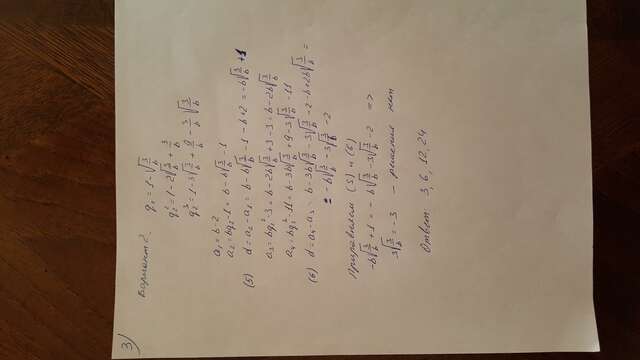 3)
Вариант 2.
q₂ = 1 - √(3/b)
q₂² = 1 - 2√(3/b) + 3/b
q₂³ = 1 - 3√(3/b) + 9/b - 3/b √(3/b)
a₁ = b - 2
a₂ = bq₂ - 1 = b - b√(3/b) - 1
(5) d = a₂ - a₁ = b - b√(3/b) - 1 - b + 2 = -b√(3/b) + 1
a₃ = bq₂² - 3 = b - 2b√(3/b) + 3 - 3 = b - 2b√(3/b)
a₄ = bq₂³ - 11 = b - 3b√(3/b) + 9 - 3√(3/b) - 11
(6) d = a₄ - a₃ = b - 3b√(3/b) - 3√(3/b) - 2 - b + 2b√(3/b) =
= -b√(3/b) - 3√(3/b) - 2
Приравняем (5) и (6)
-b√(3/b) + 1 = -b√(3/b) - 3√(3/b) - 2 =>
3√(3/b) = -3 - решения нет
Ответ: 3, 6, 12, 24